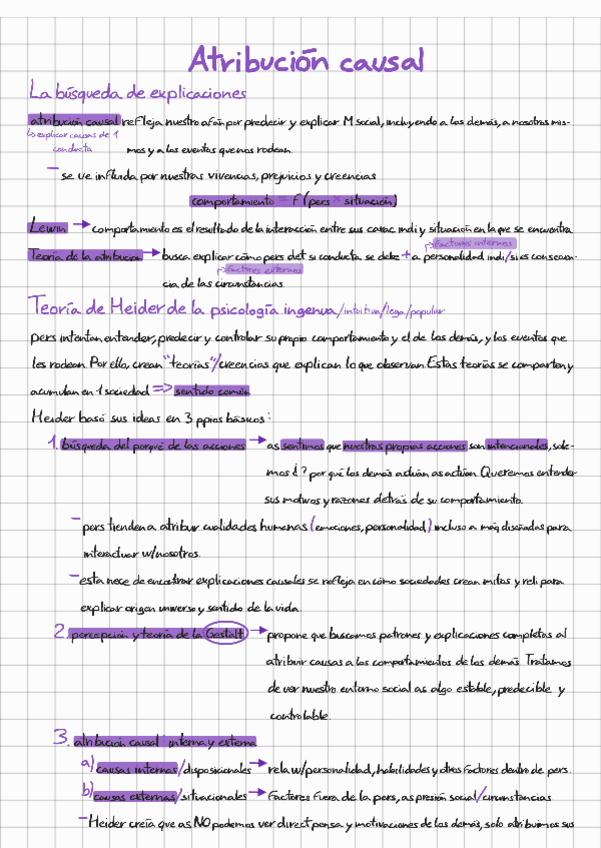 Atribución causal
La búsqueda de explicaciones
atribución causal refleja nuestro afán por predecir y explicar M social, incluyendo a los demás, a nosotros mis-
↳ explicar causas de 1
conducta
mos y a los eventos que nos rodean.
- se ve influida por nuestras vivencias, prejuicios y creencias
comportamiento = F (pers × situación)
Lewin → comportamiento es el resultado de la interacción entre sus carac indi y situación en la que se encuentra
factores internos
Teoría de la atribución → busca explicar cómo pers det si conducta se debe + a personalidad indi/si es consecuen-
factores externos
cia de las circunstancias
Teoría de Heider de la psicología ingenua/intuitiva/lega/popular
pers intentan entender, predecir y controlar su propio comportamiento y el de los demás, y los eventos que
les rodean. Por ello, crean "teorías"/creencias que explican lo que observan. Estas teorías se comparten y
acumulan en 1 sociedad => sentido común
Heider basó sus ideas en 3 ppios básicos:
1. búsqueda del porqué de las acciones → as sentimos que nuestras propias acciones son intencionales, sole-
mos ¿? por qué los demás actúan as actúan. Queremos entender
sus motivos y razones detrás de su comportamiento.
- pers tienden a atribuir cualidades humanas (emociones, personalidad) incluso a máq diseñadas para
interactuar w/nosotros.
- esta nece de encontrar explicaciones causales se refleja en cómo sociedades crean mitos y reli para
explicar origen universo y sentido de la vida.
2. percepción y teoría de la Gestalt → propone que buscamos patrones y explicaciones completas al
atribuir causas a los comportamientos de los demás. Tratamos
de ver nuestro entorno social as algo estable, predecible y
controlable.
3. atribución causal interna y externa
a) causas internas/disposicionales → rela w/personalidad, habilidades y otros factores dentro de pers.
b) causas externas/situacionales → factores fuera de la pers, as presión social/circunstancias
- Heider creía que as NO podemos ver direct pensa y motivaciones de los demás, solo atribuimos sus